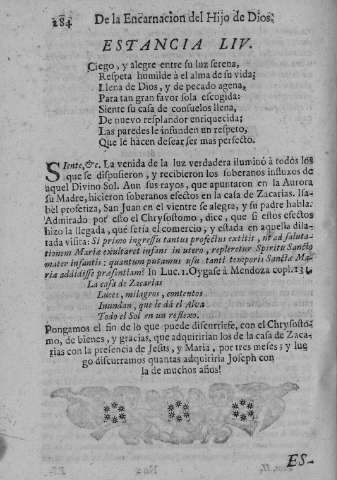 284 De la Encarnacion del Hijo de Dios;
ESTANCIA LIV.
Ciego, y alegre entre su luz serena,
Respeta humilde à el alma de su vida;
Llena de Dios, y de pecado agena,
Para tan gran favor sola escogida:
Siente su casa de consuelos llena,
De nuevo resplandor enriquecida;
Las paredes le infunden un respeto,
Que le hacen desear ser mas perfecto.
Siente, &c. La venida de la luz verdadera iluminò à todos los
que se dispusieron, y recibieron los soberanos influxos de
aquel Divino Sol. Aun sus rayos, que apuntaron en la Aurora
su Madre, hicieron soberanos efectos en la casa de Zacarias. Isa-
bèl profetiza, San Juan en el vientre se alegra, y su padre habla.
Admirado por esto el Chrysostomo, y dice, que si estos efectos
hizo la llegada, què seria el comercio, y estada en aquella dila-
tada visita: Si primo ingressu tantus profectus extitit, ut ad saluta-
tionem Mariæ exultaret infans in utero, repleretur Spiritu Sancto
mater infantis: quantum putamus usu tanti temporis Sanctæ Ma-
riæ addidisse præsentiam! In Luc. 1. Oygase à Mendoza copl. 131.
La casa de Zacarias
Luces, milagros, contentos
Inundan, que le dà el Alva
Todo el Sol en un reflexo.
Pongamos el fin de lo que puede discurrirse, con el Chrysosto-
mo, de bienes, y gracias, que adquiririan los de la casa de Zaca-
rias con la presencia de Jesus, y Maria, por tres meses; y lue-
go discurramos quantas adquiriria Joseph con
la de muchos años!
ES-